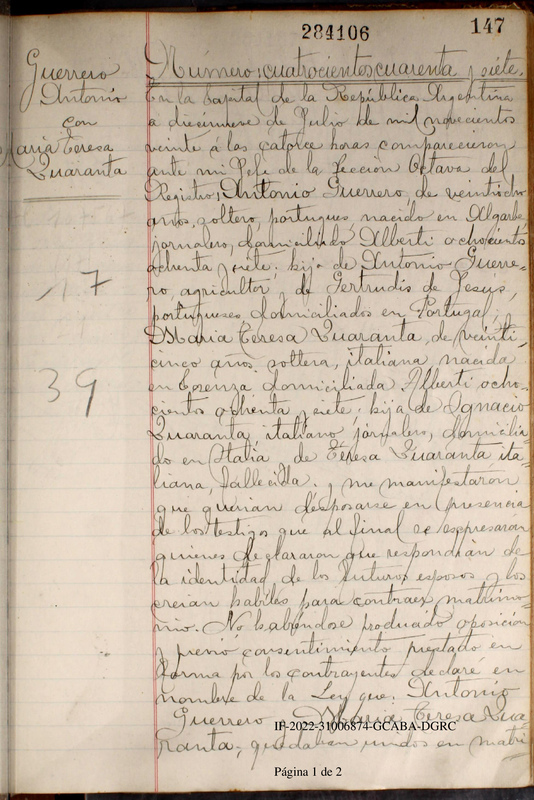 284106
147
Guerrero
Antonio
con
Maria Teresa
Quaranta
17
39
Número, cuatrocientos cuarenta y siete.
En la Capital de la República Argentina
a diecinueve de Julio de mil novecientos
veinte a las catorce horas comparecieron
ante mi Jefe de la Sección Octava del
Registro; Antonio Guerrero de veintiocho
años, soltero, portugues, nacido en Algarbe,
jornalero, domiciliado Alberti ochocientos
ochenta y siete; hijo de Antonio Guerre-
ro, agricultor, y de Gertrudis de Jesús,
portugueses, domiciliados en Portugal;
Maria Teresa Quaranta, de veinti-
cinco años soltera, italiana nacida
en Cosenza domiciliada Alberti ocho-
cientos ochenta y siete; hija de Ignacio
Quaranta, italiano, jornalero, domicilia-
do en Italia de Teresa Quaranta ita-
liana, fallecida. y me manifestaron
que querian desposarse en presencia
de los testigos que al final se espresarán
quienes declararon que respondian de
la identidad de los futuros esposos y los
creian habiles para contraer matrimo-
nio. No habiéndose producido oposición
y previo consentimiento prestado en
forma por los contrayentes declaré en
nombre de la Ley que. Antonio
Guerrero y Maria Teresa Qua-
ranta; quedaban unidos en matri
IF-2022-31006874-GCABA-DGRC
Página 1 de 2